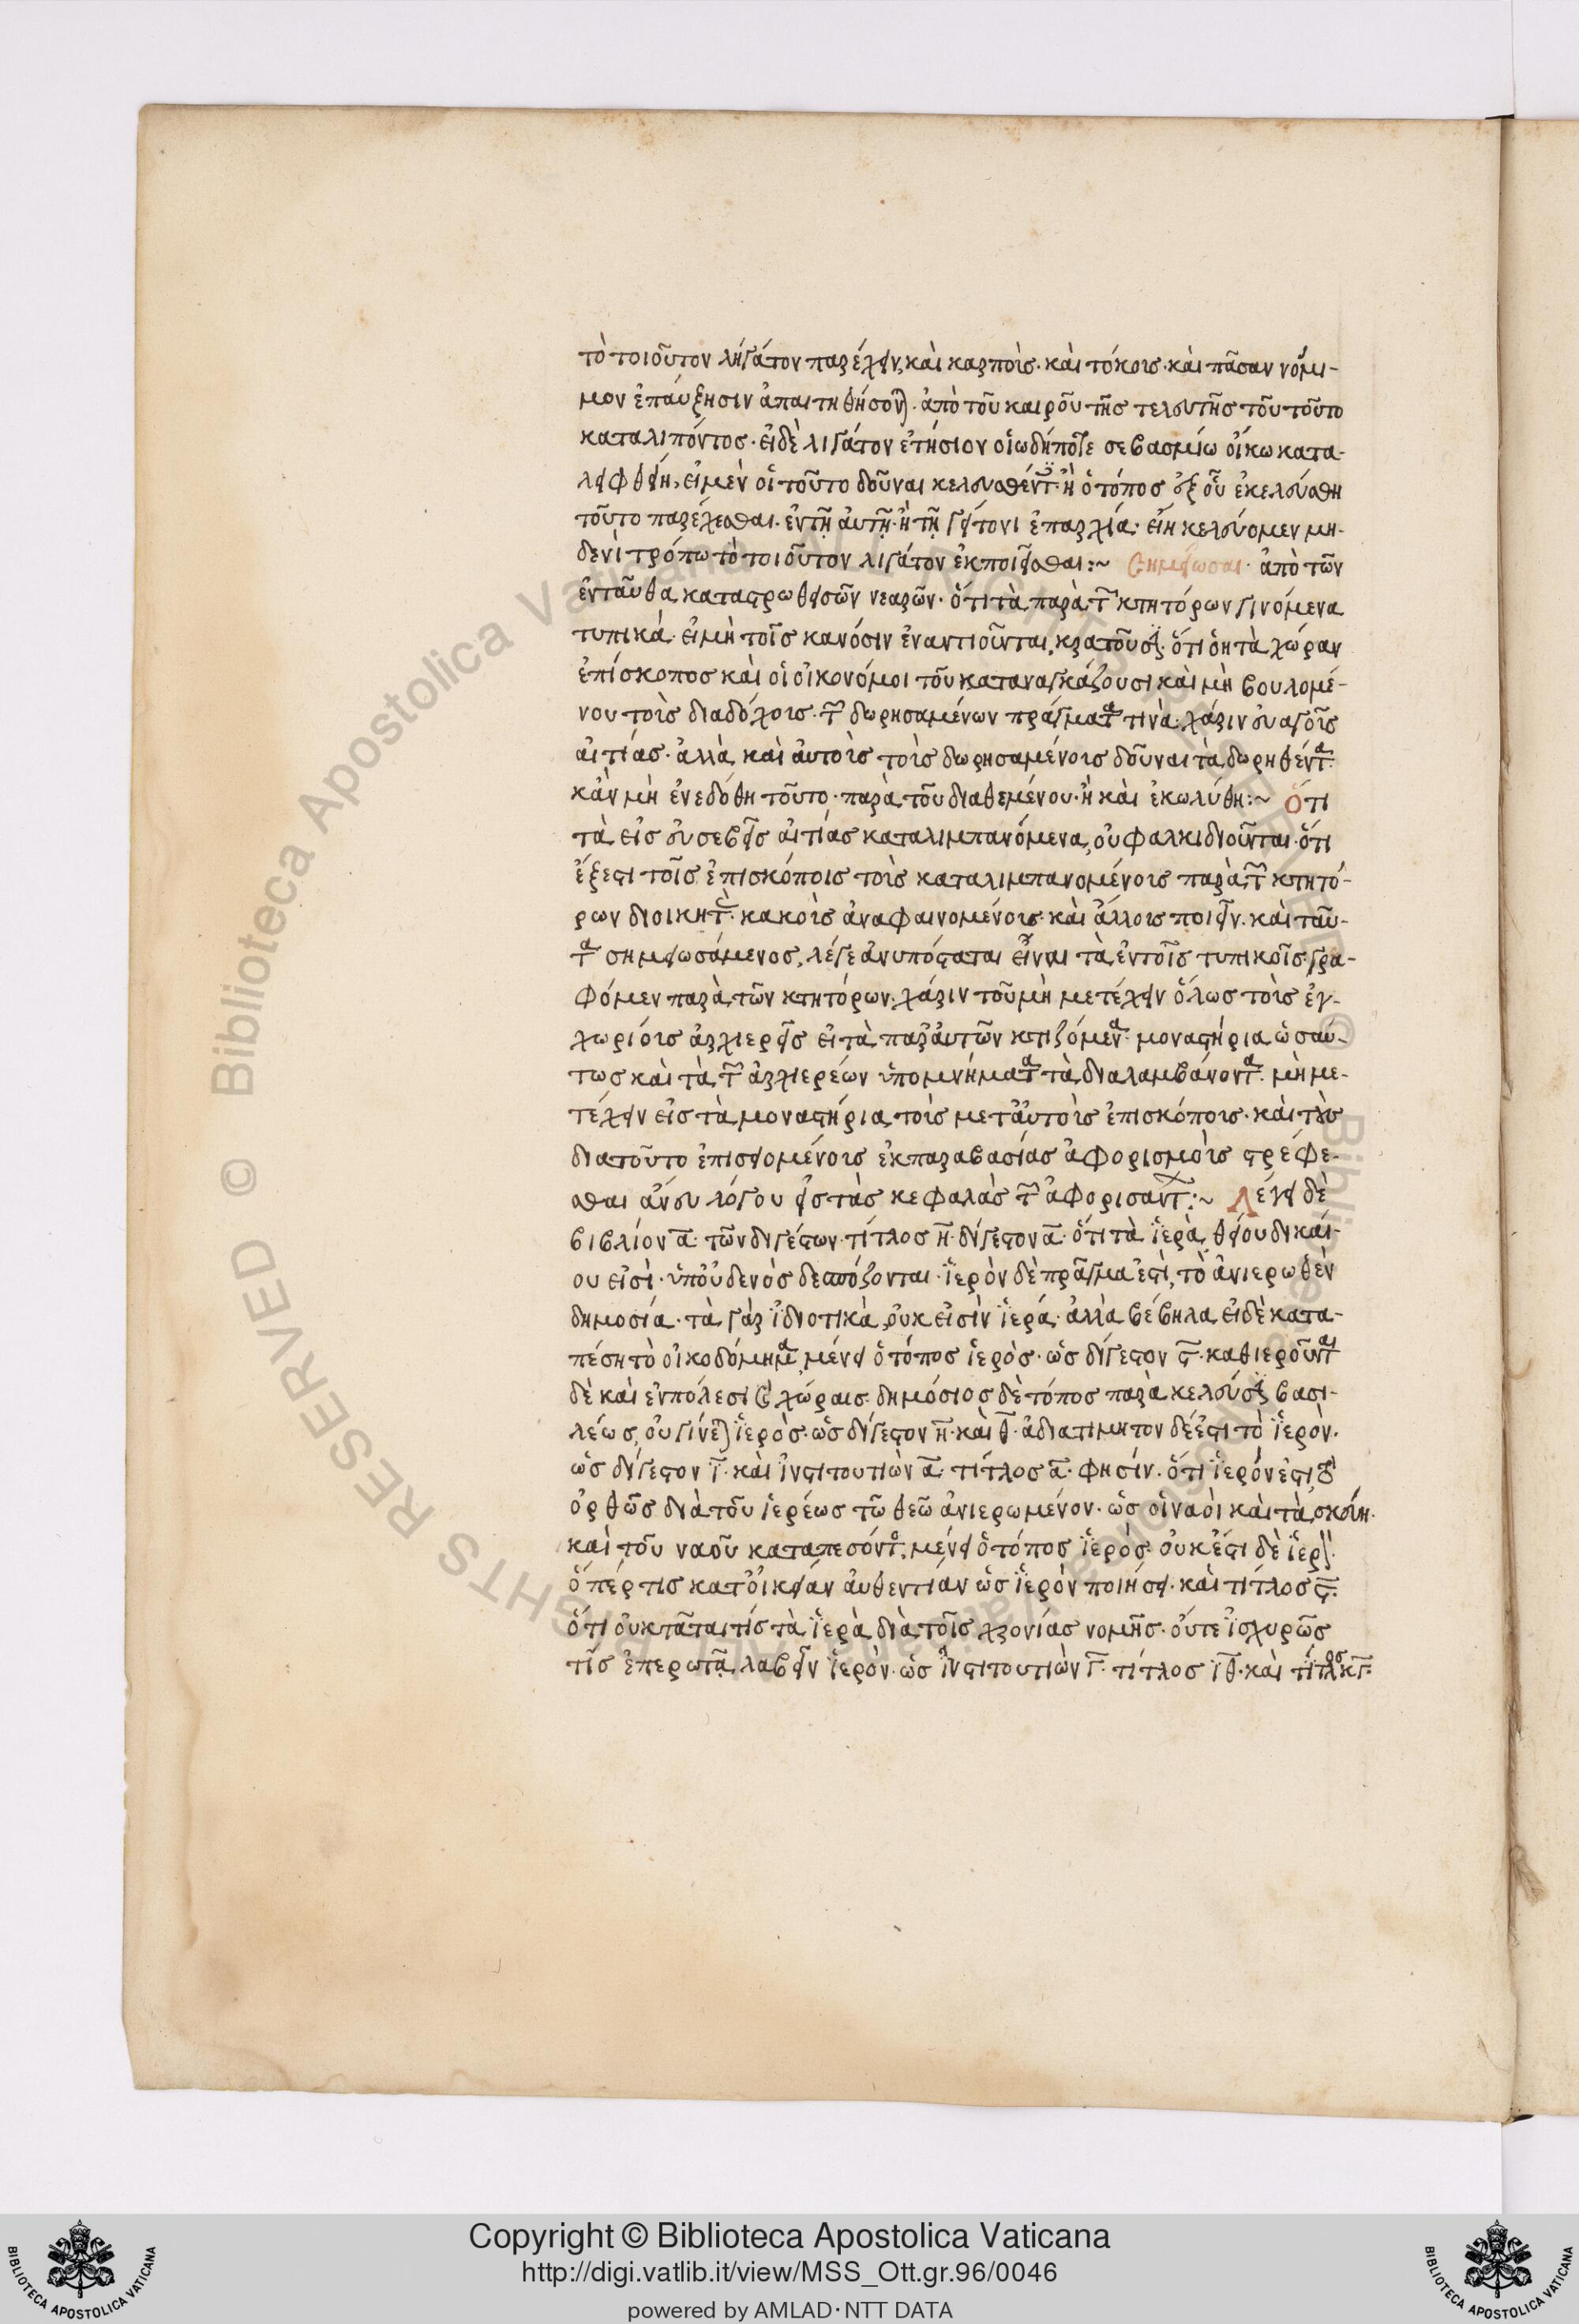 τὸ τοιοῦτον ληγάτον παρέχειν, καὶ καρποῖς· καὶ τόκοις· καὶ πᾶσαν νόμι-
μον ἐπαύξησιν ἀπαιτηθήσονται· ἀπὸ τοῦ καιροῦ τῆς τελευτῆς τοῦ τοῦτο
καταλιπόντος· εἰ δὲ λιγάτον ἐτήσιον οἱωδήποτε σεβασμίω οἴκω κατα-
λειφθείη, εἰ μὲν οἱ τοῦτο δοῦναι κελευσθέντες· ἢ ὁ τόπος ἐξ οὗ ἐκελεύσθη
τοῦτο παρέχεσθαι· ἐν τῇ αὐτῇ· ἢ τῇ γείτονι ἐπαρχία· εἴη κελεύομεν μη-
δενὶ τρόπω τὸ τοιοῦτον λιγάτον ἐκποιεῖσθαι:~ Σημείωσαι· ἀπὸ τῶν
ἐνταῦθα καταστρωθεισῶν νεαρῶν· ὅτι τὰ παρὰ τῶν κτητόρων γινόμενα
τυπικά· εἰ μὴ τοῖς κανόσιν ἐναντιοῦνται, κρατοῦσιν· ὅτι ὁ κατὰ χώραν
ἐπίσκοπος καὶ οἱ οἰκονόμοι τοῦ καταναγκάζουσι καὶ μὴ βουλομέ-
νου τοῖς διαδόχοις· τῶν δωρησαμένων πράγματα τινὰ χάριν εὐαγοῦς
αἰτίας· ἀλλὰ καὶ αὐτοῖς τοῖς δωρησαμένοις δοῦναι τὰ δωρηθέντα·
κἂν μὴ ἐνεδόθη τοῦτο· παρὰ τοῦ διαθεμένου· ἢ καὶ ἐκωλύθη:~ Ὅτι
τὰ εἰς εὐσεβεῖς αἰτίας καταλιμπανόμενα, οὐ φαλκιδιοῦνται· ὅτι
ἔξεστι τοῖς ἐπισκόποις τοῖς καταλιμπανομένοις παρὰ τῶν κτητό-
ρων διοικηταῖς· κακοῖς ἀναφαινομένοις· καὶ ἄλλοις ποιεῖν· καὶ ταῦ-
τα σημειωσάμενος, λέγε ἀνυπόστατα εἶναι τὰ ἐν τοῖς τυπικοῖς γρα-
φόμεν παρὰ τῶν κτητόρων· χάριν τοῦ μὴ μετέχειν ὅλως τοῖς ἐγ-
χωρίοις ἀρχιερεῖς εἰ τὰ παρ αὐτῶν κτιζόμενα· μοναστήρια ὡσαύ-
τως καὶ τὰ τῶν ἀρχιερέων ὑπομνήματα τὰ διαλαμβάνοντα· μὴ με-
τέχειν εἰς τὰ μοναστήρια τοῖς μετ αὐτοῖς ἐπισκόποις· καὶ τοὺς
διατοῦτο ἐπισειομένοις ἐκ παραβασίας ἀφορισμοῖς στρέφε-
σθαι ἄνευ λόγου εἰς τὰς κεφαλὰς τῶν ἀφορισάντων:~ Λέγει δὲ
βιβλίον α· τῶν διγέστων· τίτλος η· δίγεστον α· ὅτι τὰ ἱερὰ θείου δικαί-
ου εἰσὶ· ὑπ οὐδενὸς δεσπόζονται· ἱερὸν δὲ πρᾶγμα ἐστὶ, τὸ ἀνιερωθὲν
δημοσία· τὰ γὰρ ἰδιοτικὰ, οὐκ εἰσὶν ἱερά· ἀλλὰ βέβηλα, εἰ δὲ κατα-
πέση τὸ οἰκοδόμημα, μένει ὁ τόπος ἱερὸς· ὡς δίγεστον ϛ· καθιεροῦνται
δὲ καὶ ἐν πόλεσι καὶ χώραις· δημόσιος δὲ τόπος παρὰ κέλευσιν βασι-
λέως, οὐ γίνεται ἱερὸς· ὡς δίγεστον η· καὶ θ· ἀδιατίμητον δέ ἐστι τὸ ἱερὸν·
ὡς δίγεστον ι· καὶ ἰνστιτουτιὼν α· τίτλος α· φησίν· ὅτι ἱερόν ἐστι τὸ
ὀρθῶς διὰ τοῦ ἱερέως τῶ θεῶ ἀνιερωμένον· ὡς οἱ ναοὶ καὶ τὰ σκεύη·
καὶ τοῦ ναοῦ καταπεσόντος, μένει ὁ τόπος ἱερὸς· οὐκ ἔστι δὲ ἱερὸν·
ὅπέρ τις κατ οἰκείαν αὐθεντίαν ὡς ἱερὸν ποιήσει· καὶ τίτλος ϛ·
ὅτι οὐ κτᾶται τίς τὰ ἱερὰ διὰ τοῖς χρονίας νομῆς· οὔτε ἰσχυρῶς
τίς ἐπερωτᾶ λαβεῖν ἱερὸν· ὡς ἰνστιτουτιὼν γ· τίτλος ιθ· καὶ τίτλος κγ·
Copyright © Biblioteca Apostolica Vaticana
http://digi.vatlib.it/view/MSS_Ott.gr.96/0046
powered by AMLAD·NTT DATA